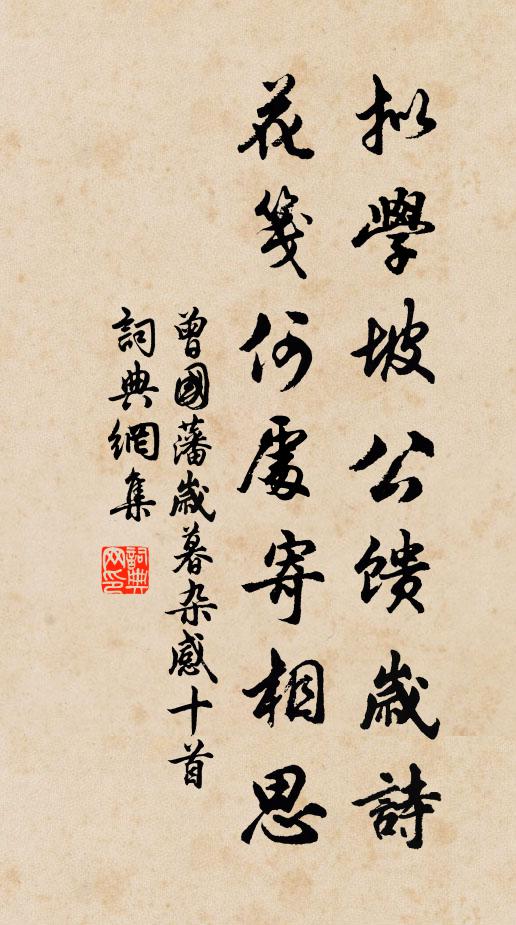 拟學坡公馈歲詩
花箋何處寄相思
曾國藩歲暮杂感十首
詞典網集
詞典网印